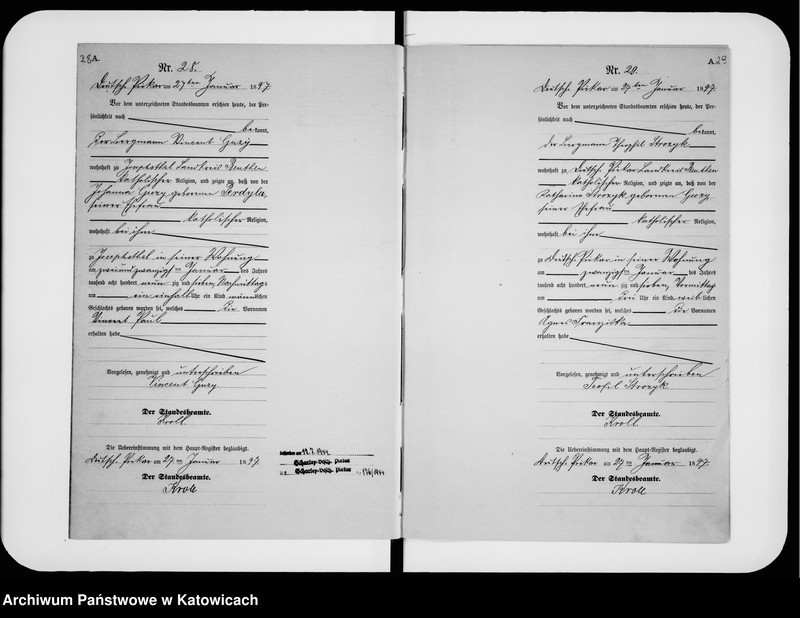 28A.
Nr. 28.
Deutsch Piekar am 27ten Januar 1897
Vor dem unterzeichneten Standesbeamten erschien heute, der Per-
sönlichkeit nach
bekannt,
der Bergmann Vincent Gury
wohnhaft zu Josephsthal Landkreis Beuthen
katholischer Religion, und zeigte an, daß von der
Johanna Gury geborene Serdyla
seiner Ehefrau
katholischer Religion,
wohnhaft bei ihm
zu Josephsthal in seiner Wohnung
am zweiundzwanzigsten Januar des Jahres
tausend acht hundert neunzig und sieben, Nachmittags
um ein einhalb Uhr ein Kind männlichen
Geschlechts geboren worden sei, welches die Vornamen
Vincent Paul
erhalten habe
Vorgelesen, genehmigt und unterschrieben
Vincent Gury
Der Standesbeamte.
Kroll
Die Uebereinstimmung mit dem Haupt-Register beglaubigt.
Deutsch Piekar am 27ten Januar 1897
Der Standesbeamte.
Kroll
Gestorben am
Scharley-Dtsch. Piekar
A29
Nr. 29.
Deutsch Piekar am 27ten Januar 1897
Vor dem unterzeichneten Standesbeamten erschien heute, der Per-
sönlichkeit nach
bekannt,
der Bergmann Theophil Strozyk
wohnhaft zu Deutsch Piekar Landkreis Beuthen
katholischer Religion, und zeigte an, daß von der
Katharina Strozyk geborenen Gury
seiner Ehefrau
katholischer Religion,
wohnhaft bei ihm
zu Deutsch Piekar in seiner Wohnung
am zwanzigsten Januar des Jahres
tausend acht hundert neunzig und sieben, Vormittags
um drei Uhr ein Kind weiblichen
Geschlechts geboren worden sei, welches die Vornamen
Agnes Franziska
erhalten habe
Vorgelesen, genehmigt und unterschrieben
Teofil Strozyk
Der Standesbeamte.
Kroll
Die Uebereinstimmung mit dem Haupt-Register beglaubigt.
Deutsch Piekar am 27ten Januar 1897
Der Standesbeamte.
Kroll
Archiwum Państwowe w Katowicach